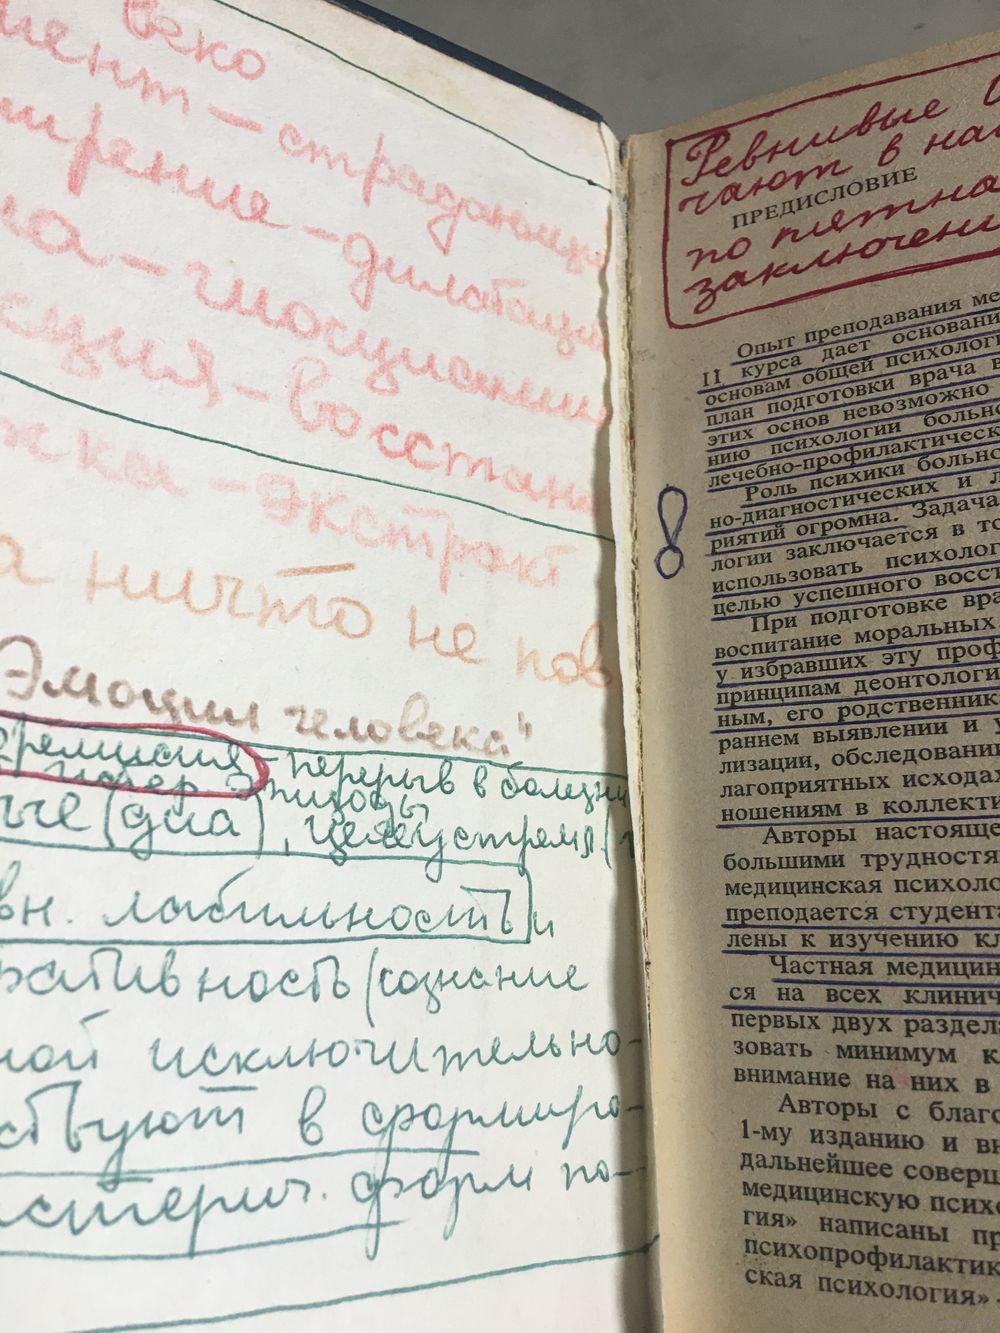 веко
иент – страдающи
ирение – дилатаци
на – гносцисти
кция – восстан
жка – экстракт
а ничто не пов
Эмоции человека"
ремиссия – перерыв в болезни
эпизоды
ые (дна), целеустремл (
вн. лабильность и
ративность (сознание
ной исключительно-
ствуют в формиро-
истерич. форм по-
Ревнивые
чают в на
ПРЕДИСЛОВИЕ
по пятна
заключени
Опыт преподавания ме
II курса дает основани
основам общей психологи
план подготовки врача в
этих основ невозможно
нию психологии больно
лечебно-профилактическ
Роль психики больно
но-диагностических и л
риятий огромна. Задача
логии заключается в то
использовать психолог
целью успешного восст
При подготовке вра
воспитание моральных
у избравших эту проф
принципам деонтологи
ным, его родственник
раннем выявлении и у
лизации, обследовани
лагоприятных исхода
ношениям в коллекти
Авторы настояще
большими трудностя
медицинская психоло
преподается студента
лены к изучению кл
Частная медицин
ся на всех клинич
первых двух раздела
зовать минимум к
внимание на них в
Авторы с благо
1-му изданию и вн
дальнейшее соверш
медицинскую психо
гия» написаны пр
психопрофилактик
ская психология».